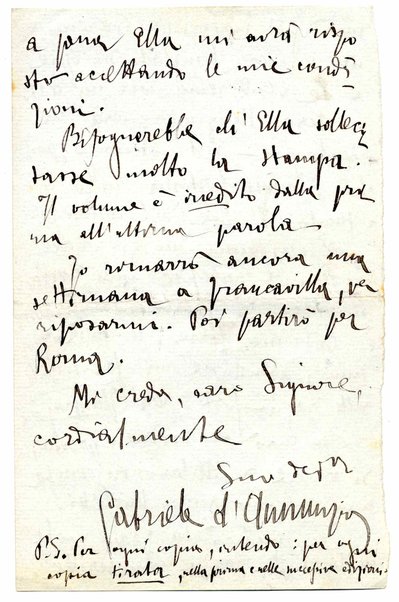 a pena Ella mi avrà rispo
sto accettando le mie condi
zioni.
Bisognerebbe ch'Ella sollecι
tasse molto la stampa.
Il volume è inedito dalla pri
ma all'ultima parola.
Io rimarrò ancora una
settimana a Francavilla, per
riposarmi. Poi partirò per
Roma.
Mi creda, caro Signore,
cordialmente
Suo dev.
Gabriele d'Annunzio
P.S. Per ogni copia, intendo: per ogni
copia tirata, nella prima e nelle successive edizioni.